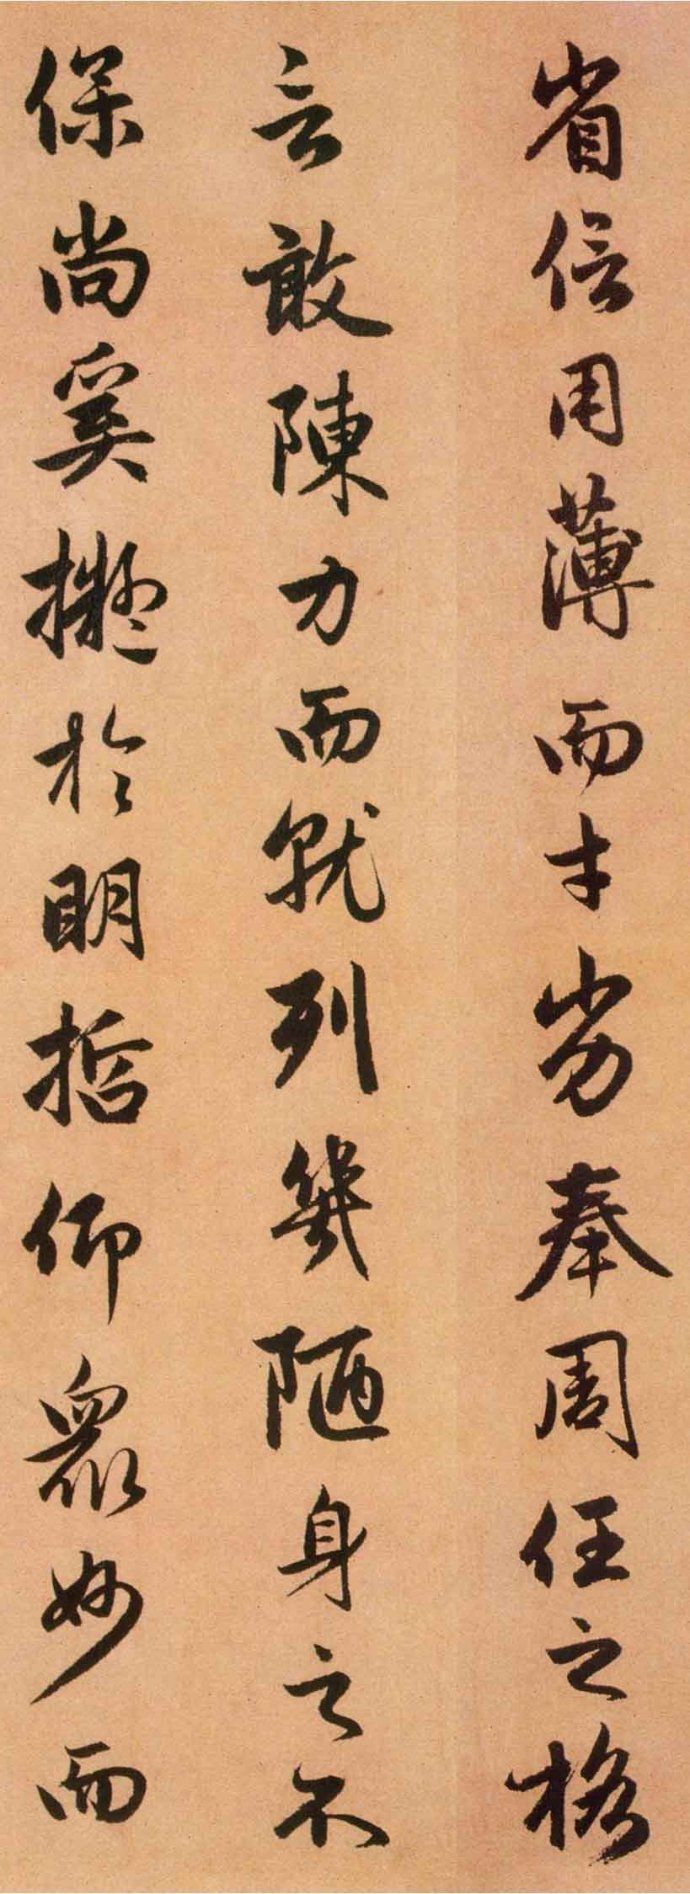 省信用薄而才劣奉周任之格
言敢陳力而就列幾陋身之不
保尚奚擬於明哲仰眾妙而